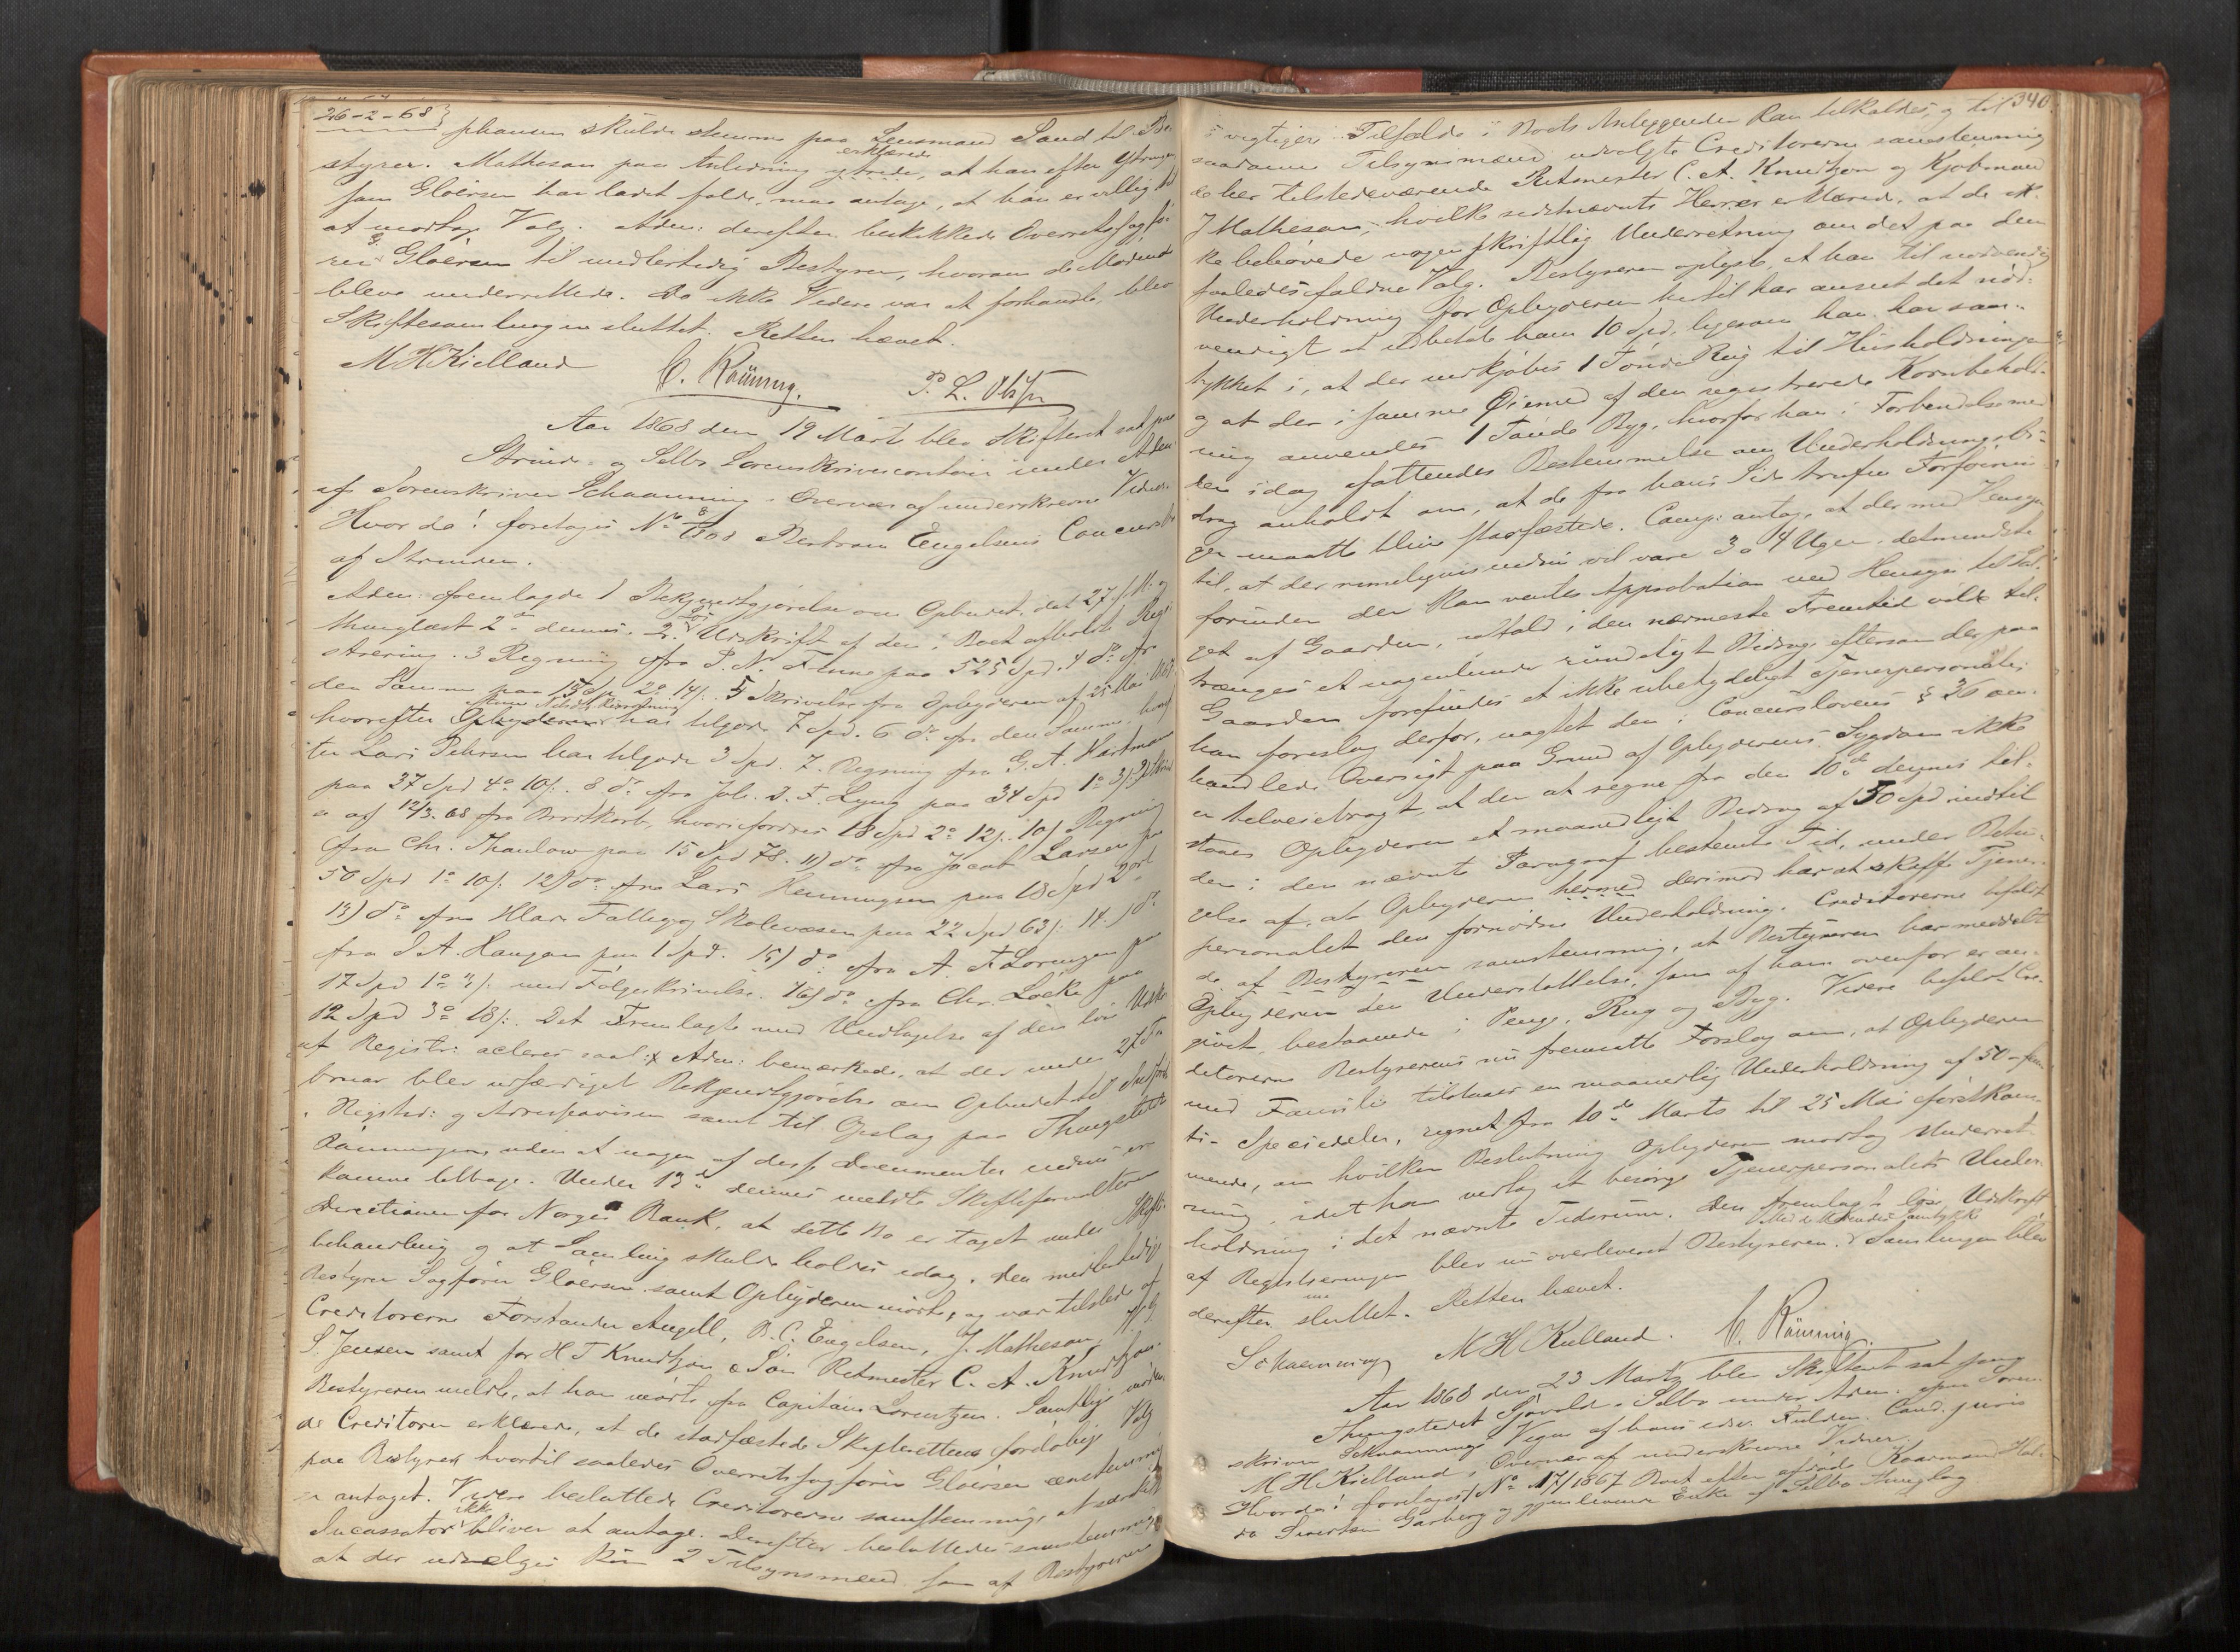 26-2-68
phansen skulde stemme paa Lensmand Sand til Be-
styrer. Matheson paa Anledning ytrede erklærede, at han efter Ytringer
som Gløersen har ladet falde, maa antage, at han er villig til
at modtage Valg. Adm: derefter beskikkede Overretssagfø-
rer Gløersen til midlertidig Bestyrer, hvorom de Mødende
bleve underrettede. Da ikke Videre var at forhandle, blev
Skiftesamlingen sluttet. Retten hævet.
M H Kielland C. Rønning. P. L. Olsen
Aar 1868 den 19 Marts blev Skifteret sat paa
Strinde- og Selbo Sorenskrivercontoir under Adm.
af Sorenskriver Schaanning i Overvær af underskrevne Vidner.
Hvorda! foretoges No 8/1868 Bertram Engelsens Concursbo
af Strinden.
Adm: fremlagde 1 Bekjendtgjørelse om Opbudet, dat 27 f. M. og
thinglæst 2den dennes. 2. Løs Udskrift af den i Boet afholdte Regi-
strering. 3 Regning fra P. N. Finne paa 525 Spd. 4 do fr
den Samme paa 15 Spd 2o 14 s. 5 Skrivelse fra Opbyderen af 25 Mai 1867
hvorefter Opbyderen har tilgode 7 Spd. 6 do fra den Samme, hvoref-
ter Lars Petersen har tilgode 3 Spd. 7. Regning fra G. A. Hartmann
paa 37 Spd 4o 10 s. 8 do fra Joh. D. F. Lyng paa 34 Spd 1o 3 s. 9 Skrivel-
se af 12/3 68 fra Brodtkorb, hvori fordres 18 Spd 2o 12 s. 10) Regning
fra Chr. Thaulow paa 15 Spd 78. 11) do fra Jacob Larsen paa
50 Spd 1o 10 s: 12) do: fra Lars Hemmingsen paa 18 Spd 2 ort
13) do fra Hlade Fattig og Skolevæsen paa 22 Spd 63 s: 14.) do
fra S. A. Haugan paa 1 Spd. 15) do: fra A. F. Lorenzen paa
17 Spd 1o 4 s: med Følgeskrivelse. 16) do fra Chr. Løcke paa
12 Spd 3o 18 s:. Det Fremlagte med Undtagelse af den løse Udskr.
af Registr: acteres saal: Adm: bemærkede, at der under 27 Fe-
bruar blev udfærdiget Bekjendtgjørelse om Opbudet til Indførsel
i Registed: og Adresseavisen samt til Opslag paa Thingstedet
Rønningen, uden at nogen af disse Documenter endnu ere
komne tilbage. Under 13de dennes meldte Skifteforvalteren
Directionen for Norges Bank, at dette Bo er taget under Skifte-
behandling og at Samling skulde holdes idag. Den midlertidige
Bestyrer Sagfører Gløersen samt Opbyderen mødte, og var tilstede af
Creditorerne Forstander Angell, B. C. Engelsen, J. Matheson,
S. Jensen samt for H T Knudtzon & Søn Ritmester C. A. Knudtzon.
Bestyreren meldte, at han mødte for Capitain Lorentzen. Samtlige møden-
de Creditorer erklærede, at de stadfæstede Skifterettens foreløbige Valg
paa Bestyrer, hvortil saaledes Overretssagfører Gløersen eenstemmig
er antaget. Videre besluttede Creditorerne samstemmig, at særskilt
Incassator ikke bliver at antage. Derefter besluttedes samstemmig
at der udvælges kun 2 Tilsynsmænd som af Bestyreren
340
i vigtigere Tilfælde i Boets Anliggender kan tilkaldes, og til
saadanne Tilsynsmænd udvalgte Creditorerne samstemmig
de her tilstedeværende Ritmester C. A. Knudtzon og Kjøbmand
J Matheson, hvilke sidstnævnte Herrer erklærede, at de ik-
ke behøvede nogen skriftlig Underretning om det paa dem
saaledes faldne Valg. Bestyreren oplyste, at han til nødvendig
Underholdning for Opbyderen hidtil har anseet det nød-
vendigt at udbetale ham 10 Spd, ligesom han har sam-
tykket i, at der indkjøbes 1 Tønde Rug til Husholdningen
og at der i samme Øiemed af den registrerede Kornbehold-
ning anvendes 1 Tønde Byg, hvorfor han i Forbindelse med
den idag fattendes Bestemmelse om Underholdningsbi-
drag anholdt om, at de fra hans Side trufne Forføinin-
ger maatte blive stadfæstede. Comp: antog, at der med Hensyn
til, at der rimeligviis endnu vil vare 3 a 4 Uger, detmindste
forinden der kan ventes Approbation med Hensyn til Sal-
get af Gaarden, ialfald i den nærmeste Fremtid vilde til-
trænges et nogenlunde rundeligt Bidrag, eftersom der paa
Gaarden forefindes et ikke ubetydeligt Tjenerpersonale;
han foreslog derfor, uagtet den i Concurslovens § 36 om-
handlede Oversigt paa Grund af Opbyderens Sygdom ikke
er tilveiebragt, at der at regne fra den 10de dennes til-
staaes Opbyderen et maanedligt Bidrag af 50 Spd indtil
den i den nævnte Paragraf bestemte Tid, under Betin-
gelse af, at Opbyderen hermed derimod har at skaffe Tjener-
personalet den fornødne Underholdning. Creditorerne bifaldt
de af Bestyreren samstemmig, at Bestyreren har meddelt
Opbyderen den Understøttelse, som af ham ovenfor er an-
givet, bestaaende i Penge, Rug og Byg. Videre bifaldt Cre-
ditorerne Bestyrerens nu fremsatte Forslag om, at Opbyderen
med Familie tilstaaes en maanedlig Underholdning af 50 - fem-
ti - Speciedaler, regnet fra 10de Marts til 25 Mai førstkom-
mende, om hvilken Beslutning Opbyderen modtog Underret-
ning, idet han vedtog at besørge Tjenerpersonalets Under-
holdning i det nævnte Tidsrum. Den fremlagte løse Udskrift
af Registreringen blev nu overleveret Bestyreren. Med de Mødendes Samtykke Samlingen blev
derefter sluttet. Retten hævet.
Schaanning M H Kielland. C. Rønning.
Aar 1868 den 23 Marts blev Skifteret sat paa
Thingstedet Sjøvold i Selbo under Adm. for Soren-
skriver Schaannings Vegne af hans edsv. Fuldm. Cand. juris
M H Kielland i Overvær af underskrevne Vidner.
Hvorda! foretoges No 17/1867 Boet efter afdøde Kaarmand Hal-
do Sivertsen Garberg og gjenlevende Enke af Selbo Thinglag